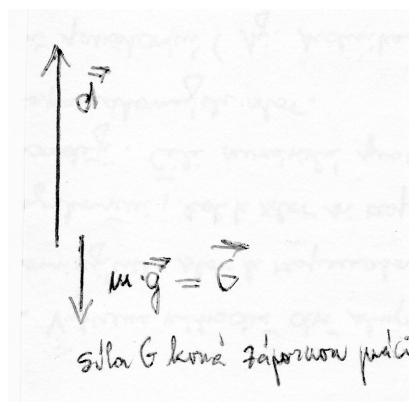 d
m·g = G
síla G koná zápornou práci